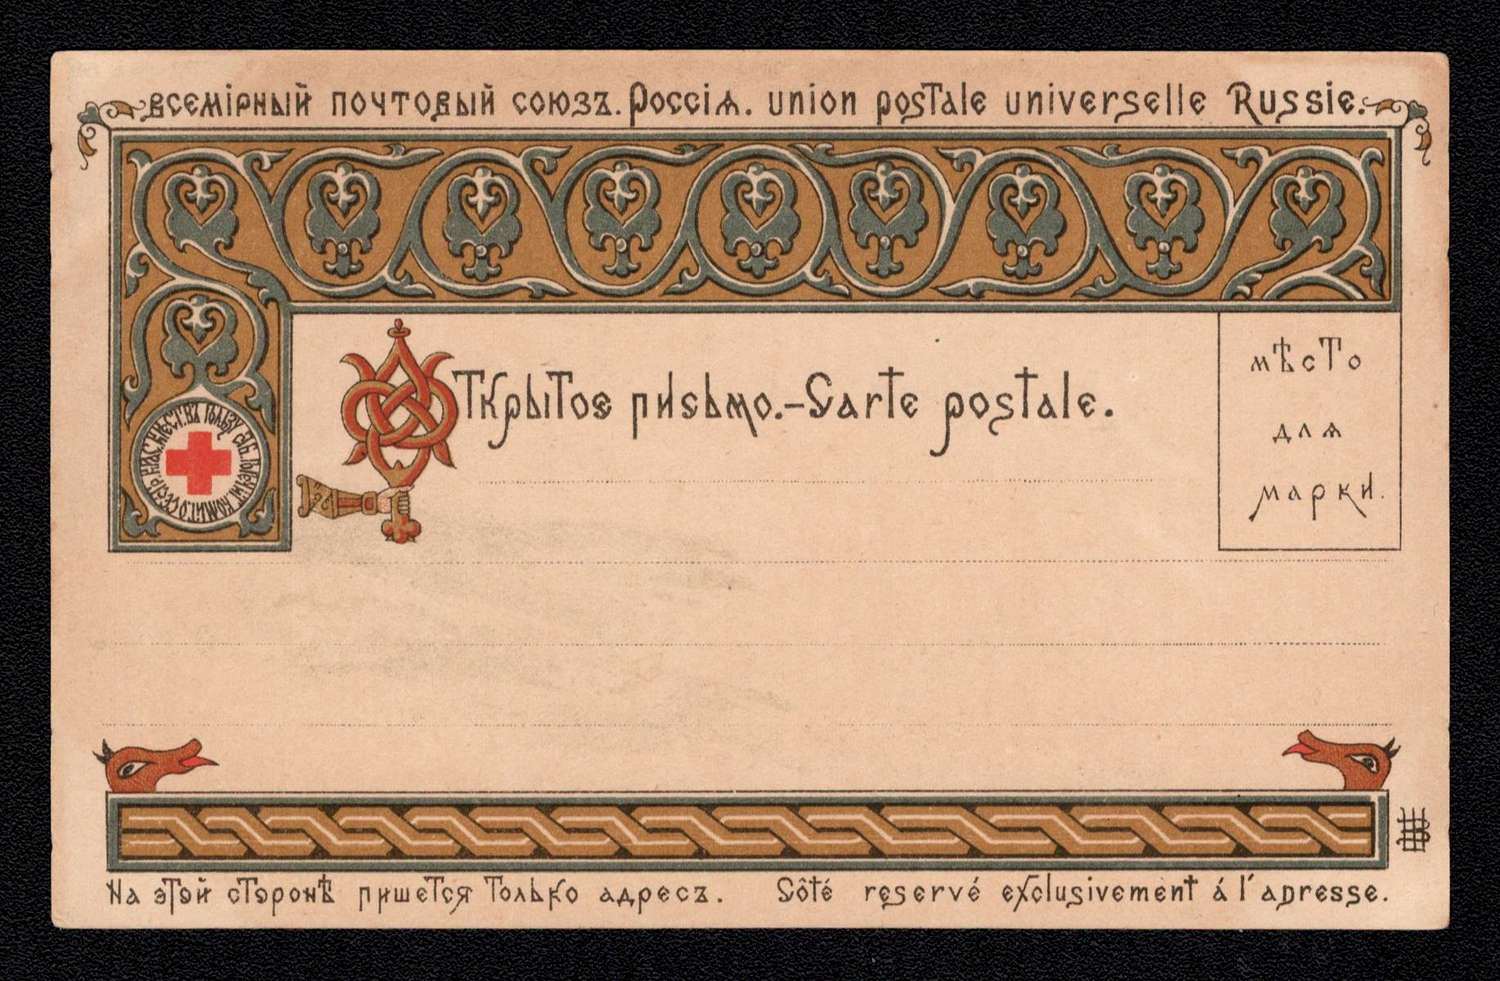 всемірный почтовый союзъ. Россіѧ. union postale universelle Russie.
Открытое письмо.-Carte postale.
мѣсто
длѧ
марки.
На этой сторонѣ пишется только адресъ. Côté reservé exclusivement á l'adresse.